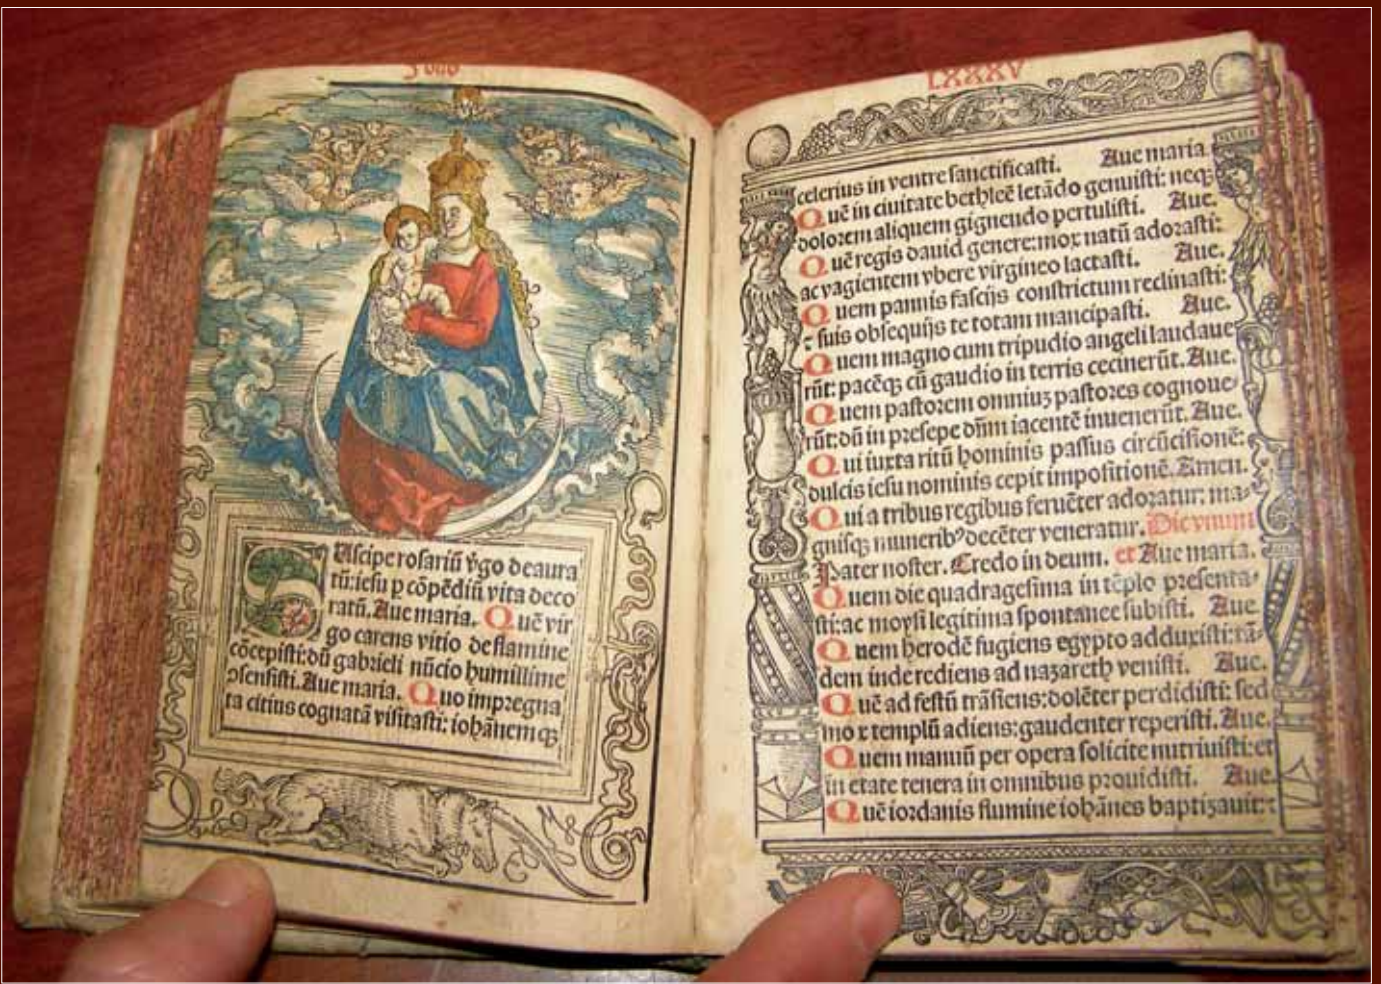 LXXXV
SUscipe rosariū v̄go deaura
tū: iesu p cōpēdiū vita deco
ratū. Aue maria. Quē vir
go carens vitio de flamine
cōcepisti: dū gabrieli nūcio humillime
ↄsensisti. Aue maria. Quo impregna
ta citius cognatā visitasti: iohānem qꝫ
celerius in ventre sanctificasti. Aue maria.
Quē in ciuitate bethleē letādo genuisti: neqꝫ
dolorem aliquem gignendo pertulisti. Aue.
Quē regis dauid genere: mox natū adorasti:
ac vagientem vbere virgineo lactasti. Aue.
Quem pannis fascijs constrictum reclinasti:
⁊ suis obsequijs te totam mancipasti. Aue.
Quem magno cum tripudio angeli laudaue
rūt: pacēqꝫ cū gaudio in terris cecinerūt. Aue.
Quem pastorem omniuꝫ pastores cognoue
rūt: dū in presepe dn̄m iacentē inuenerūt. Aue.
Qui iuxta ritū hominis passus circūcisionē:
dulcis iesu nominis cepit impositionē. Amen.
Qui a tribus regibus feruēter adoratur: ma-
gnisqꝫ muneribꝰ decēter veneratur. Dic vnum
Pater noster. Credo in deum. et Aue maria.
Quem die quadragesima in tēplo presenta-
sti: ac moysi legitima spontanee subisti. Aue
Quem herodē fugiens egypto adduxisti: tā-
dem inde rediens ad nazareth venisti. Aue.
Quē ad festū trāsiens: dolēter perdidisti: sed
mox templū adiens: gaudenter reperisti. Aue.
Quem manuū per opera solicite nutriuisti: et
in etate tenera in omnibus prouidisti. Aue.
Quē iordanis flumine iohānes baptizauit: ⁊